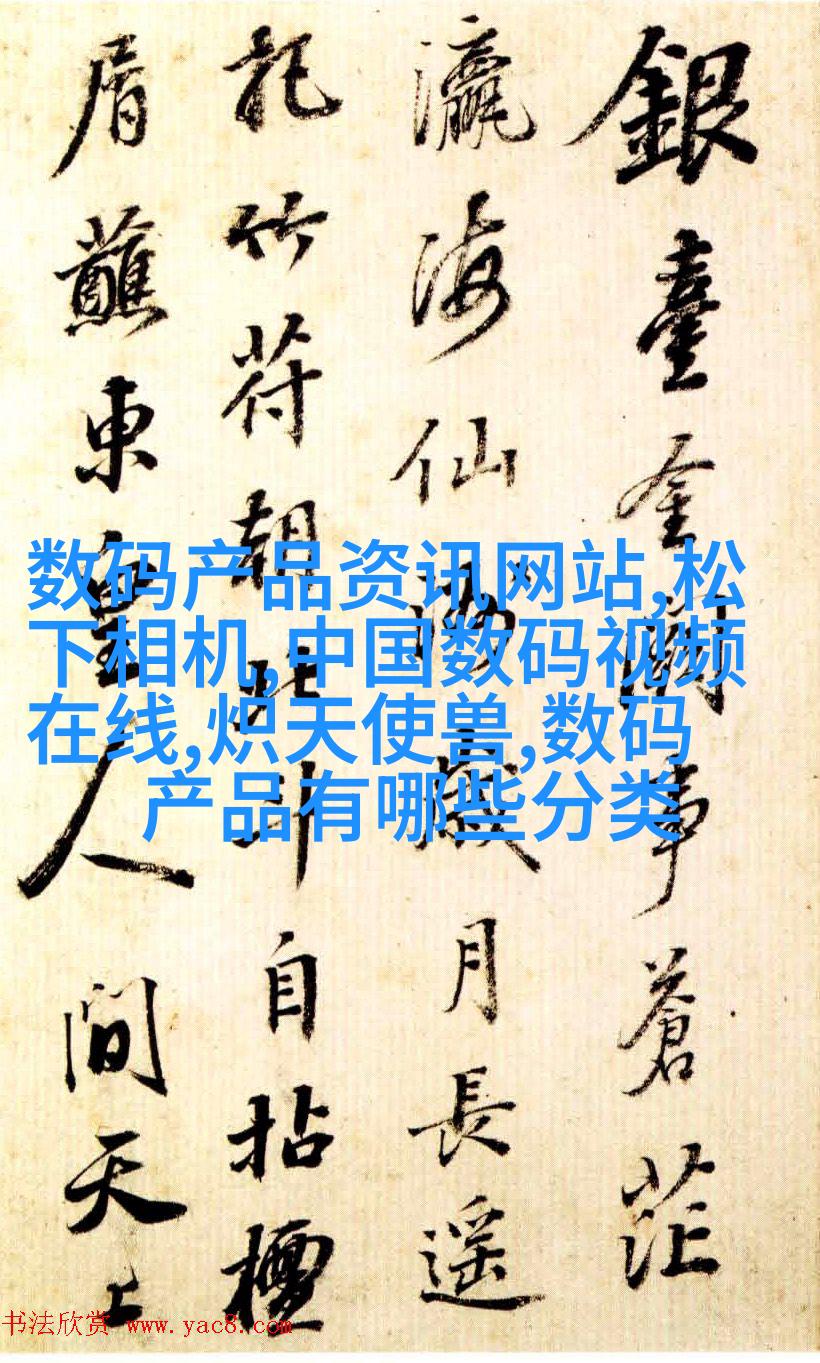 銀臺金闕事蒼茫
瀛海仙
月長遥
託竹符朝
斗自拈檀
屑蘸東皇人間天上
数码产品资讯网站,松
下相机,中国数码视频
在线,炽天使兽,数码
产品有哪些分类
书法欣赏 www.yac8.com